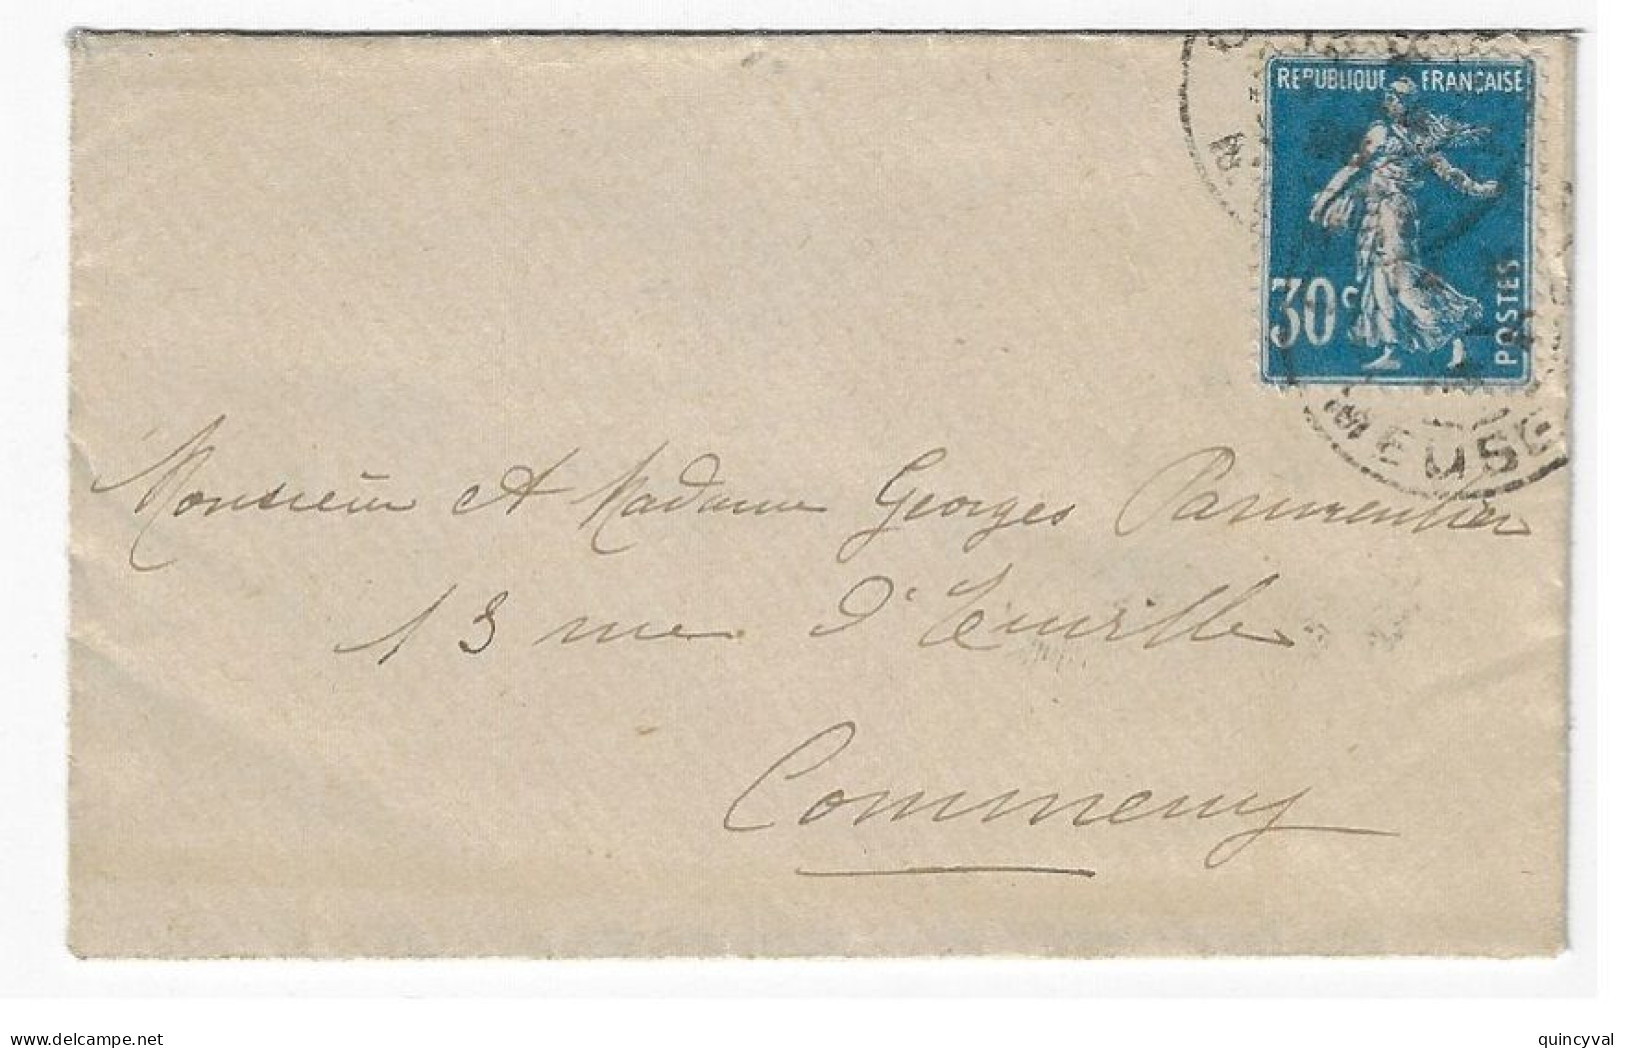 REPUBLIQUE FRANÇAISE
30c
POSTES
MEUSE
Monsieur et Madame Georges Parmentier
13 rue d'Euville
Commercy
quincyval